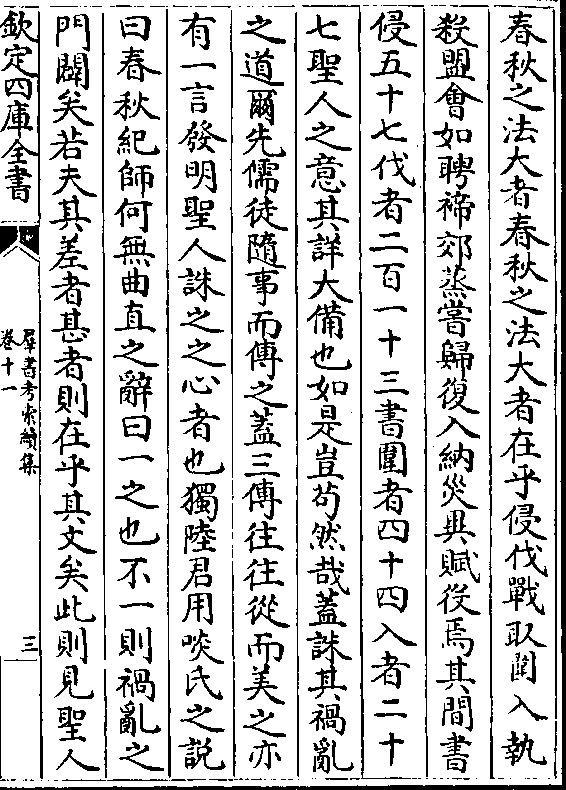 春秋之法大者春秋之法大者在乎侵伐戰取圍入執
殺盟會如聘禘郊蒸嘗歸復入納災異賦役焉其間書
侵五十七伐者二百一十三書圍者四十四入者二十
七聖人之意其詳大備也如是豈茍然哉蓋誅其禍亂
之道爾先儒徒隨事而傳之蓋三傳往往從而美之亦
有一言發明聖人誅之之心者也獨陸君用啖氏之説
曰春秋紀師何無曲直之辭曰一之也不一則禍亂之
門闢矣若夫其差者甚者則在乎其文矣此則見聖人
欽定四庫全書
羣書考索續集
卷十一
三